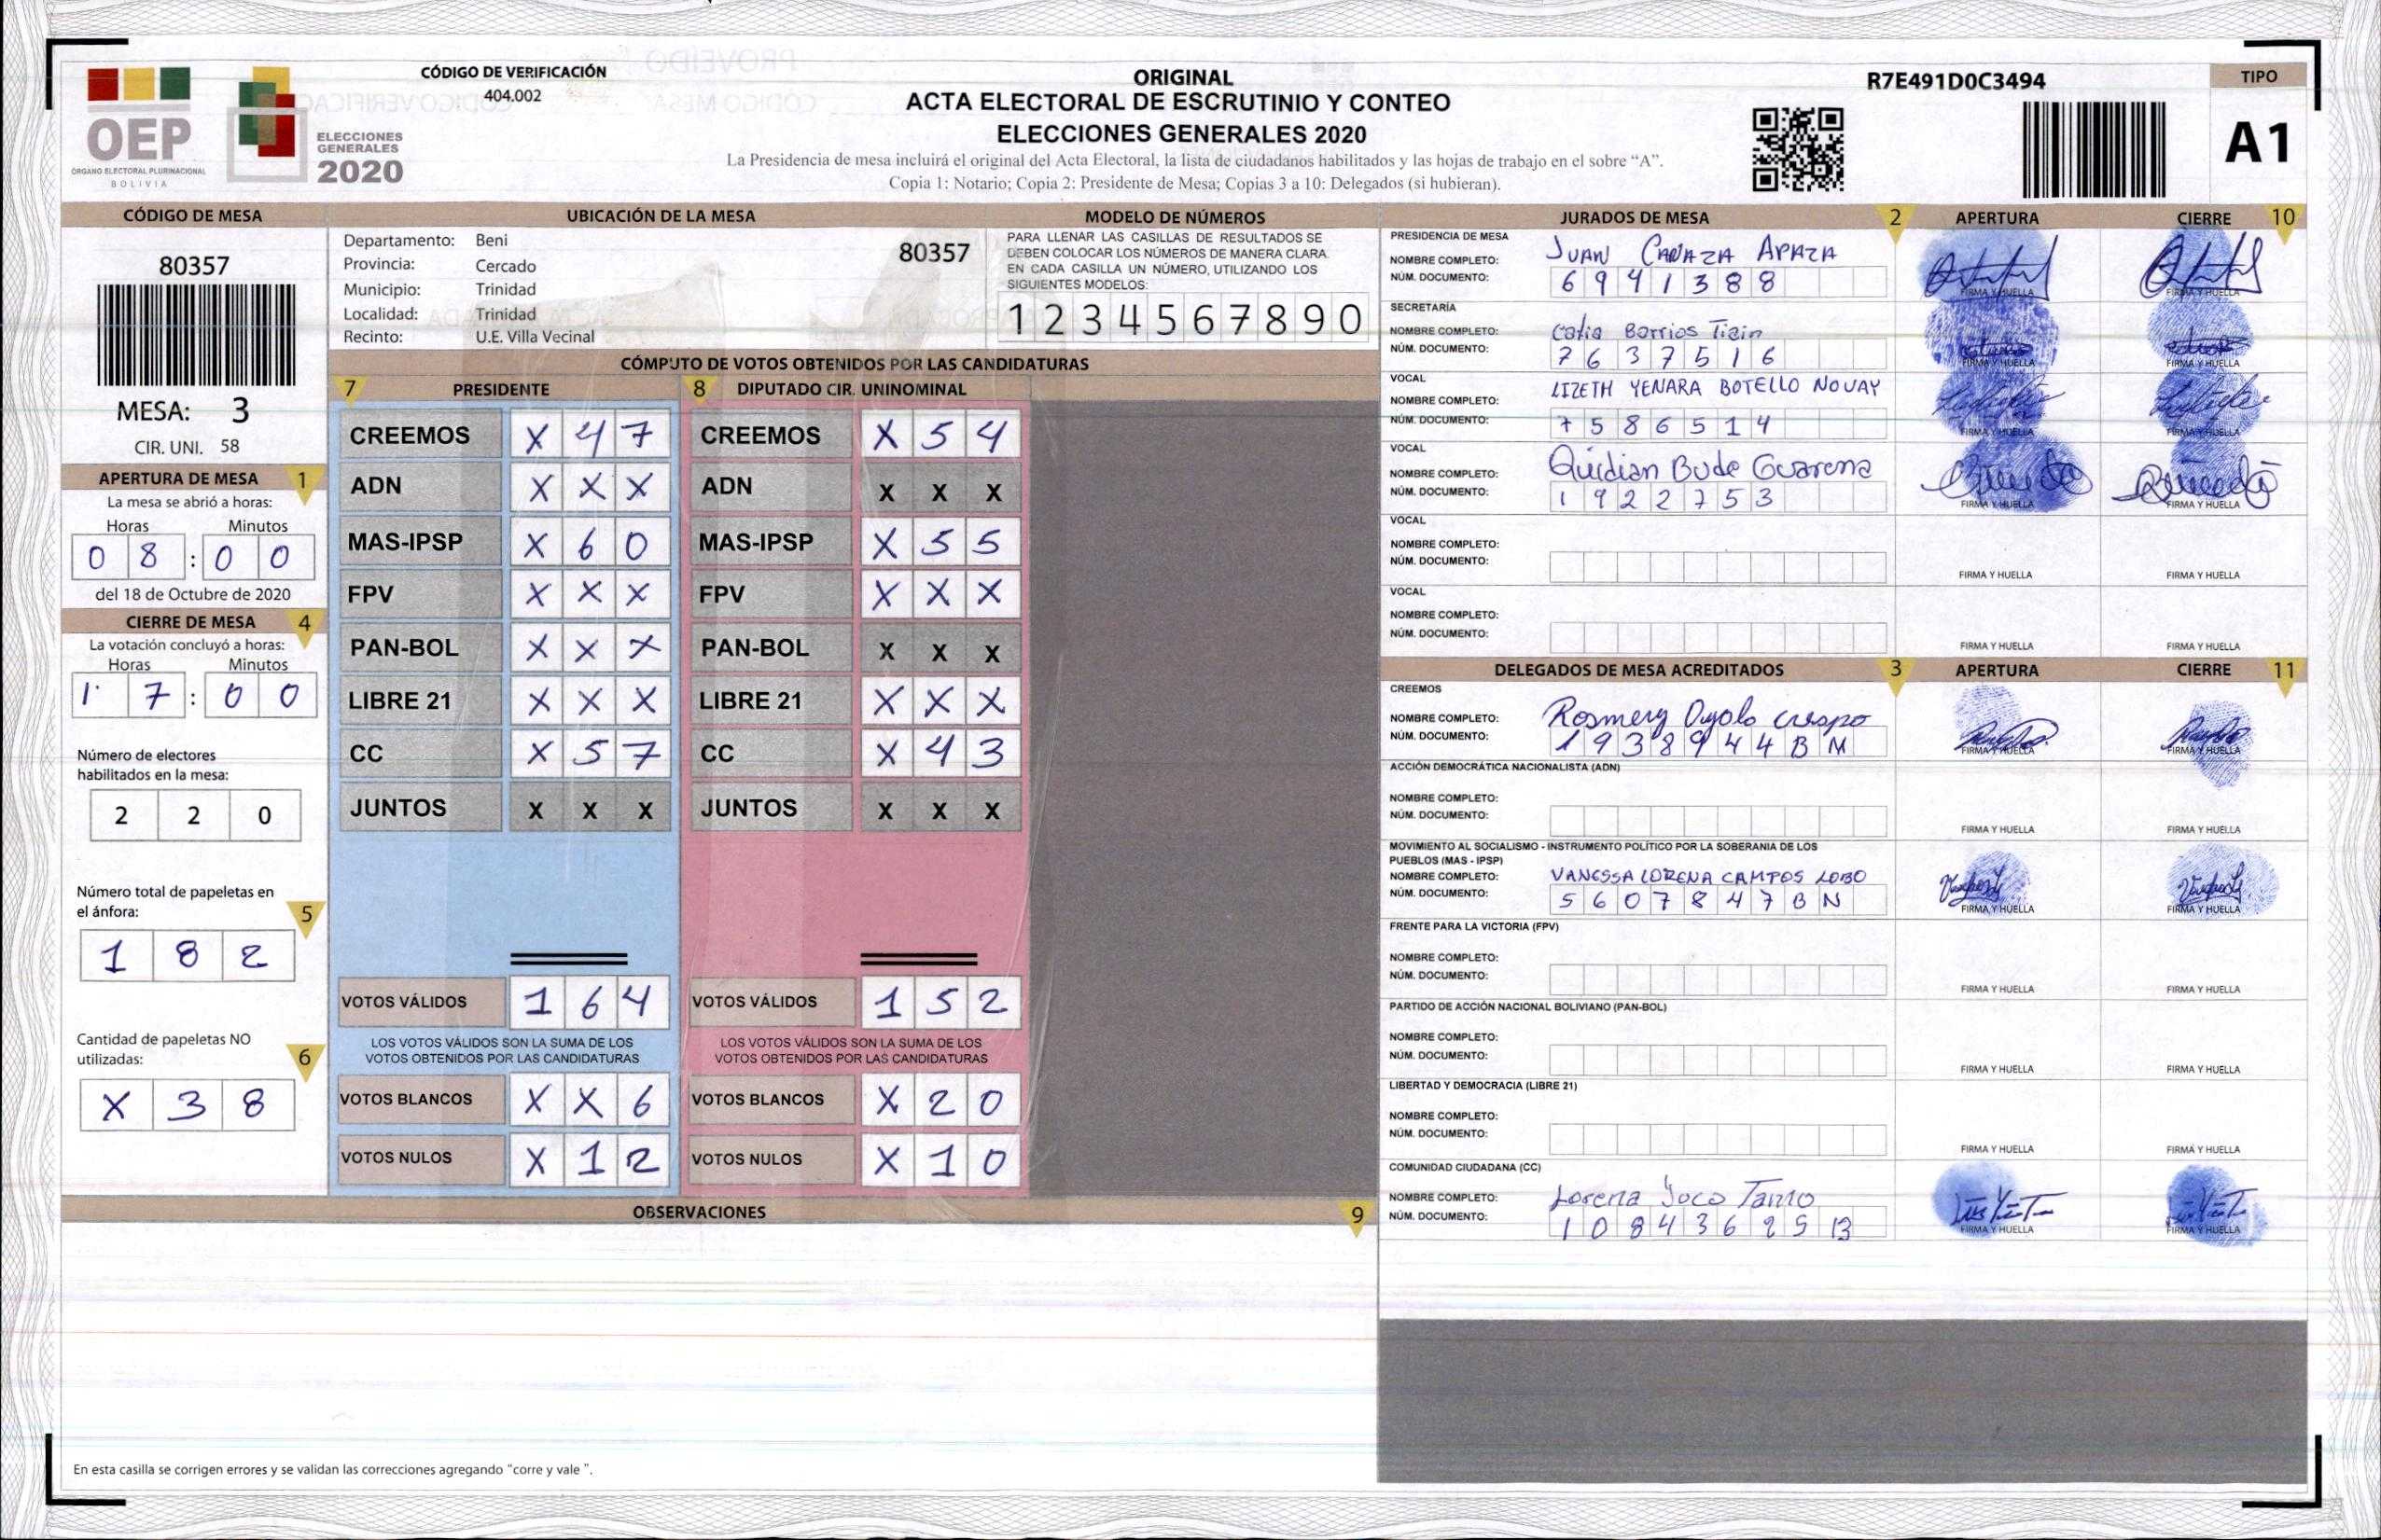 CÓDIGO DE VERIFICACIÓN
404.002
OEP
ORGANO ELECTORAL PLURINACIONAL
BOLIVIA
ELECCIONES
GENERALES
2020
ORIGINAL
ACTA ELECTORAL DE ESCRUTINIO Y CONTEO
ELECCIONES GENERALES 2020
La Presidencia de mesa incluirá el original del Acta Electoral, la lista de ciudadanos habilitados y las hojas de trabajo en el sobre “A”.
Copia 1: Notario; Copia 2: Presidente de Mesa; Copias 3 a 10: Delegados (si hubieran).
R7E491D0C3494
TIPO
A1
CÓDIGO DE MESA
80357
MESA: 3
CIR. UNI. 58
APERTURA DE MESA 1
La mesa se abrió a horas:
Horas Minutos
0 8 : 0 0
del 18 de Octubre de 2020
CIERRE DE MESA 4
La votación concluyó a horas:
Horas Minutos
1 7 : 0 0
Número de electores
habilitados en la mesa:
2 2 0
Número total de papeletas en
el ánfora: 5
1 8 2
Cantidad de papeletas NO
utilizadas: 6
X 3 8
UBICACIÓN DE LA MESA
Departamento: Beni
80357
Provincia: Cercado
Municipio: Trinidad
Localidad: Trinidad
Recinto: U.E. Villa Vecinal
MODELO DE NÚMEROS
PARA LLENAR LAS CASILLAS DE RESULTADOS SE
DEBEN COLOCAR LOS NÚMEROS DE MANERA CLARA.
EN CADA CASILLA UN NÚMERO, UTILIZANDO LOS
SIGUIENTES MODELOS:
1 2 3 4 5 6 7 8 9 0
CÓMPUTO DE VOTOS OBTENIDOS POR LAS CANDIDATURAS
7 PRESIDENTE 8 DIPUTADO CIR. UNINOMINAL
CREEMOS X 4 7 CREEMOS X 5 4
ADN X X X ADN X X X
MAS-IPSP X 6 0 MAS-IPSP X 5 5
FPV X X X FPV X X X
PAN-BOL X X X PAN-BOL X X X
LIBRE 21 X X X LIBRE 21 X X X
CC X 5 7 CC X 4 3
JUNTOS X X X JUNTOS X X X
VOTOS VÁLIDOS 1 6 4 VOTOS VÁLIDOS 1 5 2
LOS VOTOS VÁLIDOS SON LA SUMA DE LOS LOS VOTOS VÁLIDOS SON LA SUMA DE LOS
VOTOS OBTENIDOS POR LAS CANDIDATURAS VOTOS OBTENIDOS POR LAS CANDIDATURAS
VOTOS BLANCOS X X 6 VOTOS BLANCOS X 2 0
VOTOS NULOS X 1 2 VOTOS NULOS X 1 0
OBSERVACIONES 9
En esta casilla se corrigen errores y se validan las correcciones agregando “corre y vale ”.
JURADOS DE MESA 2 APERTURA CIERRE 10
PRESIDENCIA DE MESA
NOMBRE COMPLETO: JUAN APAZA
NÚM. DOCUMENTO: 6 9 4 1 3 8 8
FIRMA Y HUELLA FIRMA Y HUELLA
SECRETARÍA
NOMBRE COMPLETO: Barrios
NÚM. DOCUMENTO: 7 6 3 7 5 1 6
FIRMA Y HUELLA FIRMA Y HUELLA
VOCAL
NOMBRE COMPLETO: LIZETH YENARA BOTELLO NOUAY
NÚM. DOCUMENTO: 7 5 8 6 5 1 4
FIRMA Y HUELLA FIRMA Y HUELLA
VOCAL
NOMBRE COMPLETO: Bude
NÚM. DOCUMENTO: 1 9 2 2 7 5 3
FIRMA Y HUELLA FIRMA Y HUELLA
VOCAL
NOMBRE COMPLETO:
NÚM. DOCUMENTO:
FIRMA Y HUELLA FIRMA Y HUELLA
VOCAL
NOMBRE COMPLETO:
NÚM. DOCUMENTO:
FIRMA Y HUELLA FIRMA Y HUELLA
DELEGADOS DE MESA ACREDITADOS 3 APERTURA CIERRE 11
CREEMOS
NOMBRE COMPLETO: Rosmery Crespo
NÚM. DOCUMENTO: 1 9 3 8 9 4 4 B M
FIRMA Y HUELLA FIRMA Y HUELLA
ACCIÓN DEMOCRÁTICA NACIONALISTA (ADN)
NOMBRE COMPLETO:
NÚM. DOCUMENTO:
FIRMA Y HUELLA FIRMA Y HUELLA
MOVIMIENTO AL SOCIALISMO - INSTRUMENTO POLÍTICO POR LA SOBERANIA DE LOS
PUEBLOS (MAS - IPSP)
NOMBRE COMPLETO: VANESSA LORENA CAMPOS LOBO
NÚM. DOCUMENTO: 5 6 0 7 8 4 7 B N
FIRMA Y HUELLA FIRMA Y HUELLA
FRENTE PARA LA VICTORIA (FPV)
NOMBRE COMPLETO:
NÚM. DOCUMENTO:
FIRMA Y HUELLA FIRMA Y HUELLA
PARTIDO DE ACCIÓN NACIONAL BOLIVIANO (PAN-BOL)
NOMBRE COMPLETO:
NÚM. DOCUMENTO:
FIRMA Y HUELLA FIRMA Y HUELLA
LIBERTAD Y DEMOCRACIA (LIBRE 21)
NOMBRE COMPLETO:
NÚM. DOCUMENTO:
FIRMA Y HUELLA FIRMA Y HUELLA
COMUNIDAD CIUDADANA (CC)
NOMBRE COMPLETO: Lorena
NÚM. DOCUMENTO:
FIRMA Y HUELLA FIRMA Y HUELLA